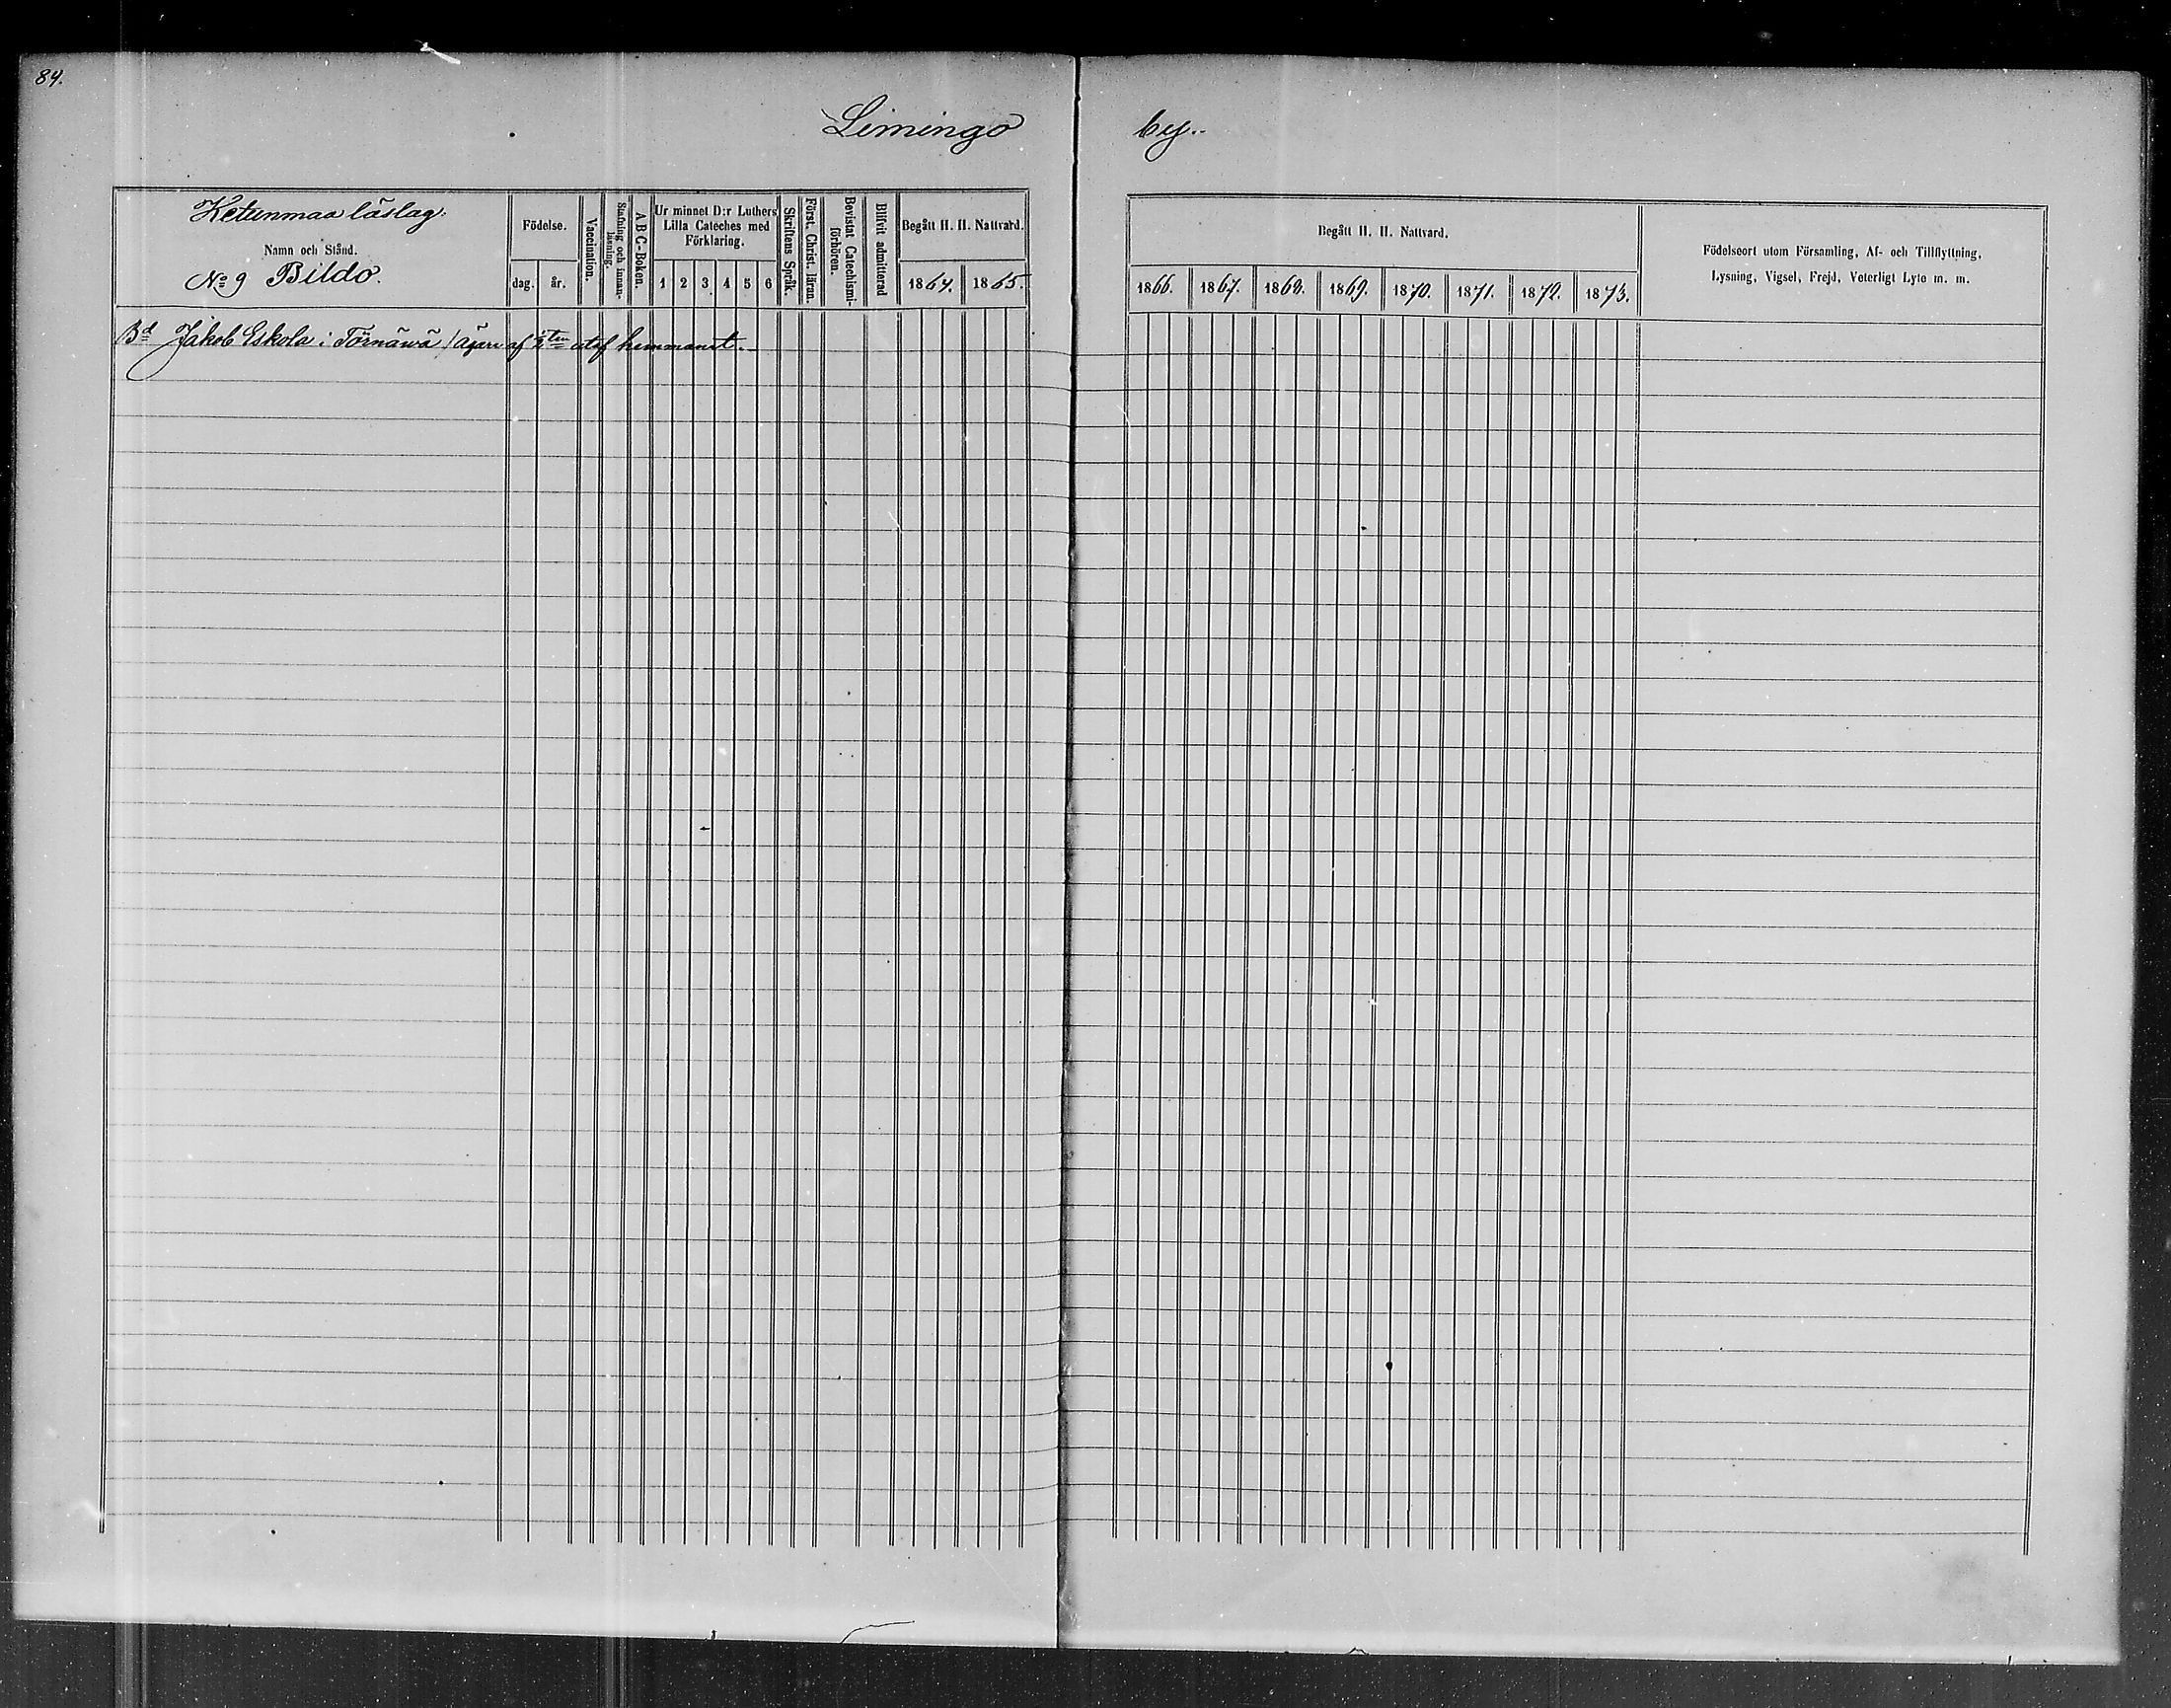 84.
Limingo by.
Ketunmaa läslag.
Namn och Stånd.
No 9 Bildo.
Födelse.
dag. år.
Vaccination.
Stafning och innan-
läsning.
A B C-Boken.
Ur minnet D:r Luthers
Lilla Cateches med
Förklaring.
1 2 3 4 5 6
Skriftens Språk.
Först. Christ. läran.
Bevistat Catechismi-
förhören.
Blifvit admitterad
Begått H. H. Nattvard.
1864. 1865.
Begått H. H. Nattvard.
1866. 1867. 1868. 1869. 1870. 1871. 1872. 1873.
Födelseort utom Församling, Af- och Tillflyttning,
Lysning, Vigsel, Frejd, Veterligt Lyte m. m.
Bd Jakob Eskola i Törnäwä /ägare af hemmanet.